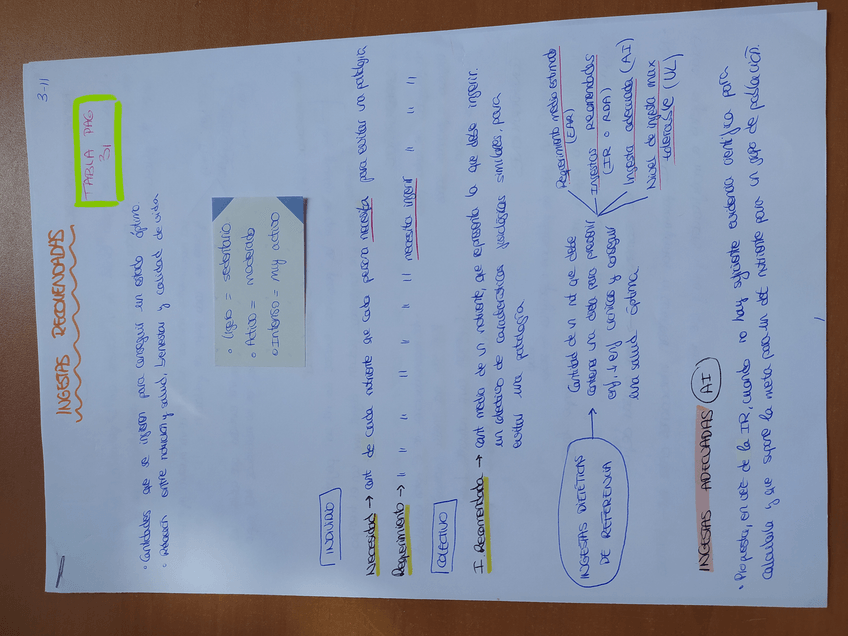 3-11
INGESTAS RECOMENDADAS
TABLA PAG.
31
• Cantidades que se ingieren para conseguir un estado óptimo
• Relación entre nutrición y salud, bienestar y calidad de vida
• Ligero = sedentario
• Activo = moderado
• Intenso = muy activo
INDIVIDUO
Necesidad → cant de cada nutriente que cada persona necesita para evitar una patología
Requerimiento → " " " " " " " necesita ingerir " " "
COLECTIVO
I. Recomendada → cant media de un nutriente, que representa la que debe ingerir
un colectivo de características fisiológicas similares, para
evitar una patología
INGESTAS DIETÉTICAS
DE REFERENCIA
→ Cantidad de un nt que debe
contener una dieta para prevenir
enf, ↓ enf crónicas y conseguir
una salud óptima
Requerimiento medio estimado
(EAR)
Ingestas Recomendadas
(IR o RDA)
Ingesta adecuada (AI)
Nivel de ingesta max
tolerable (UL)
INGESTAS ADECUADAS (AI)
• Propuesta, en vez de la IR, cuando no hay suficiente evidencia científica para
calcularla y que supone la meta para un det nutriente para un grupo de población.